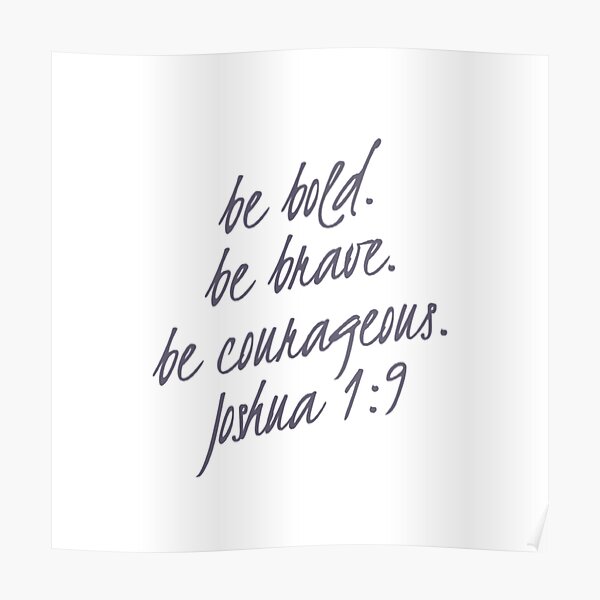 be bold.
be brave.
be courageous.
Joshua 1:9